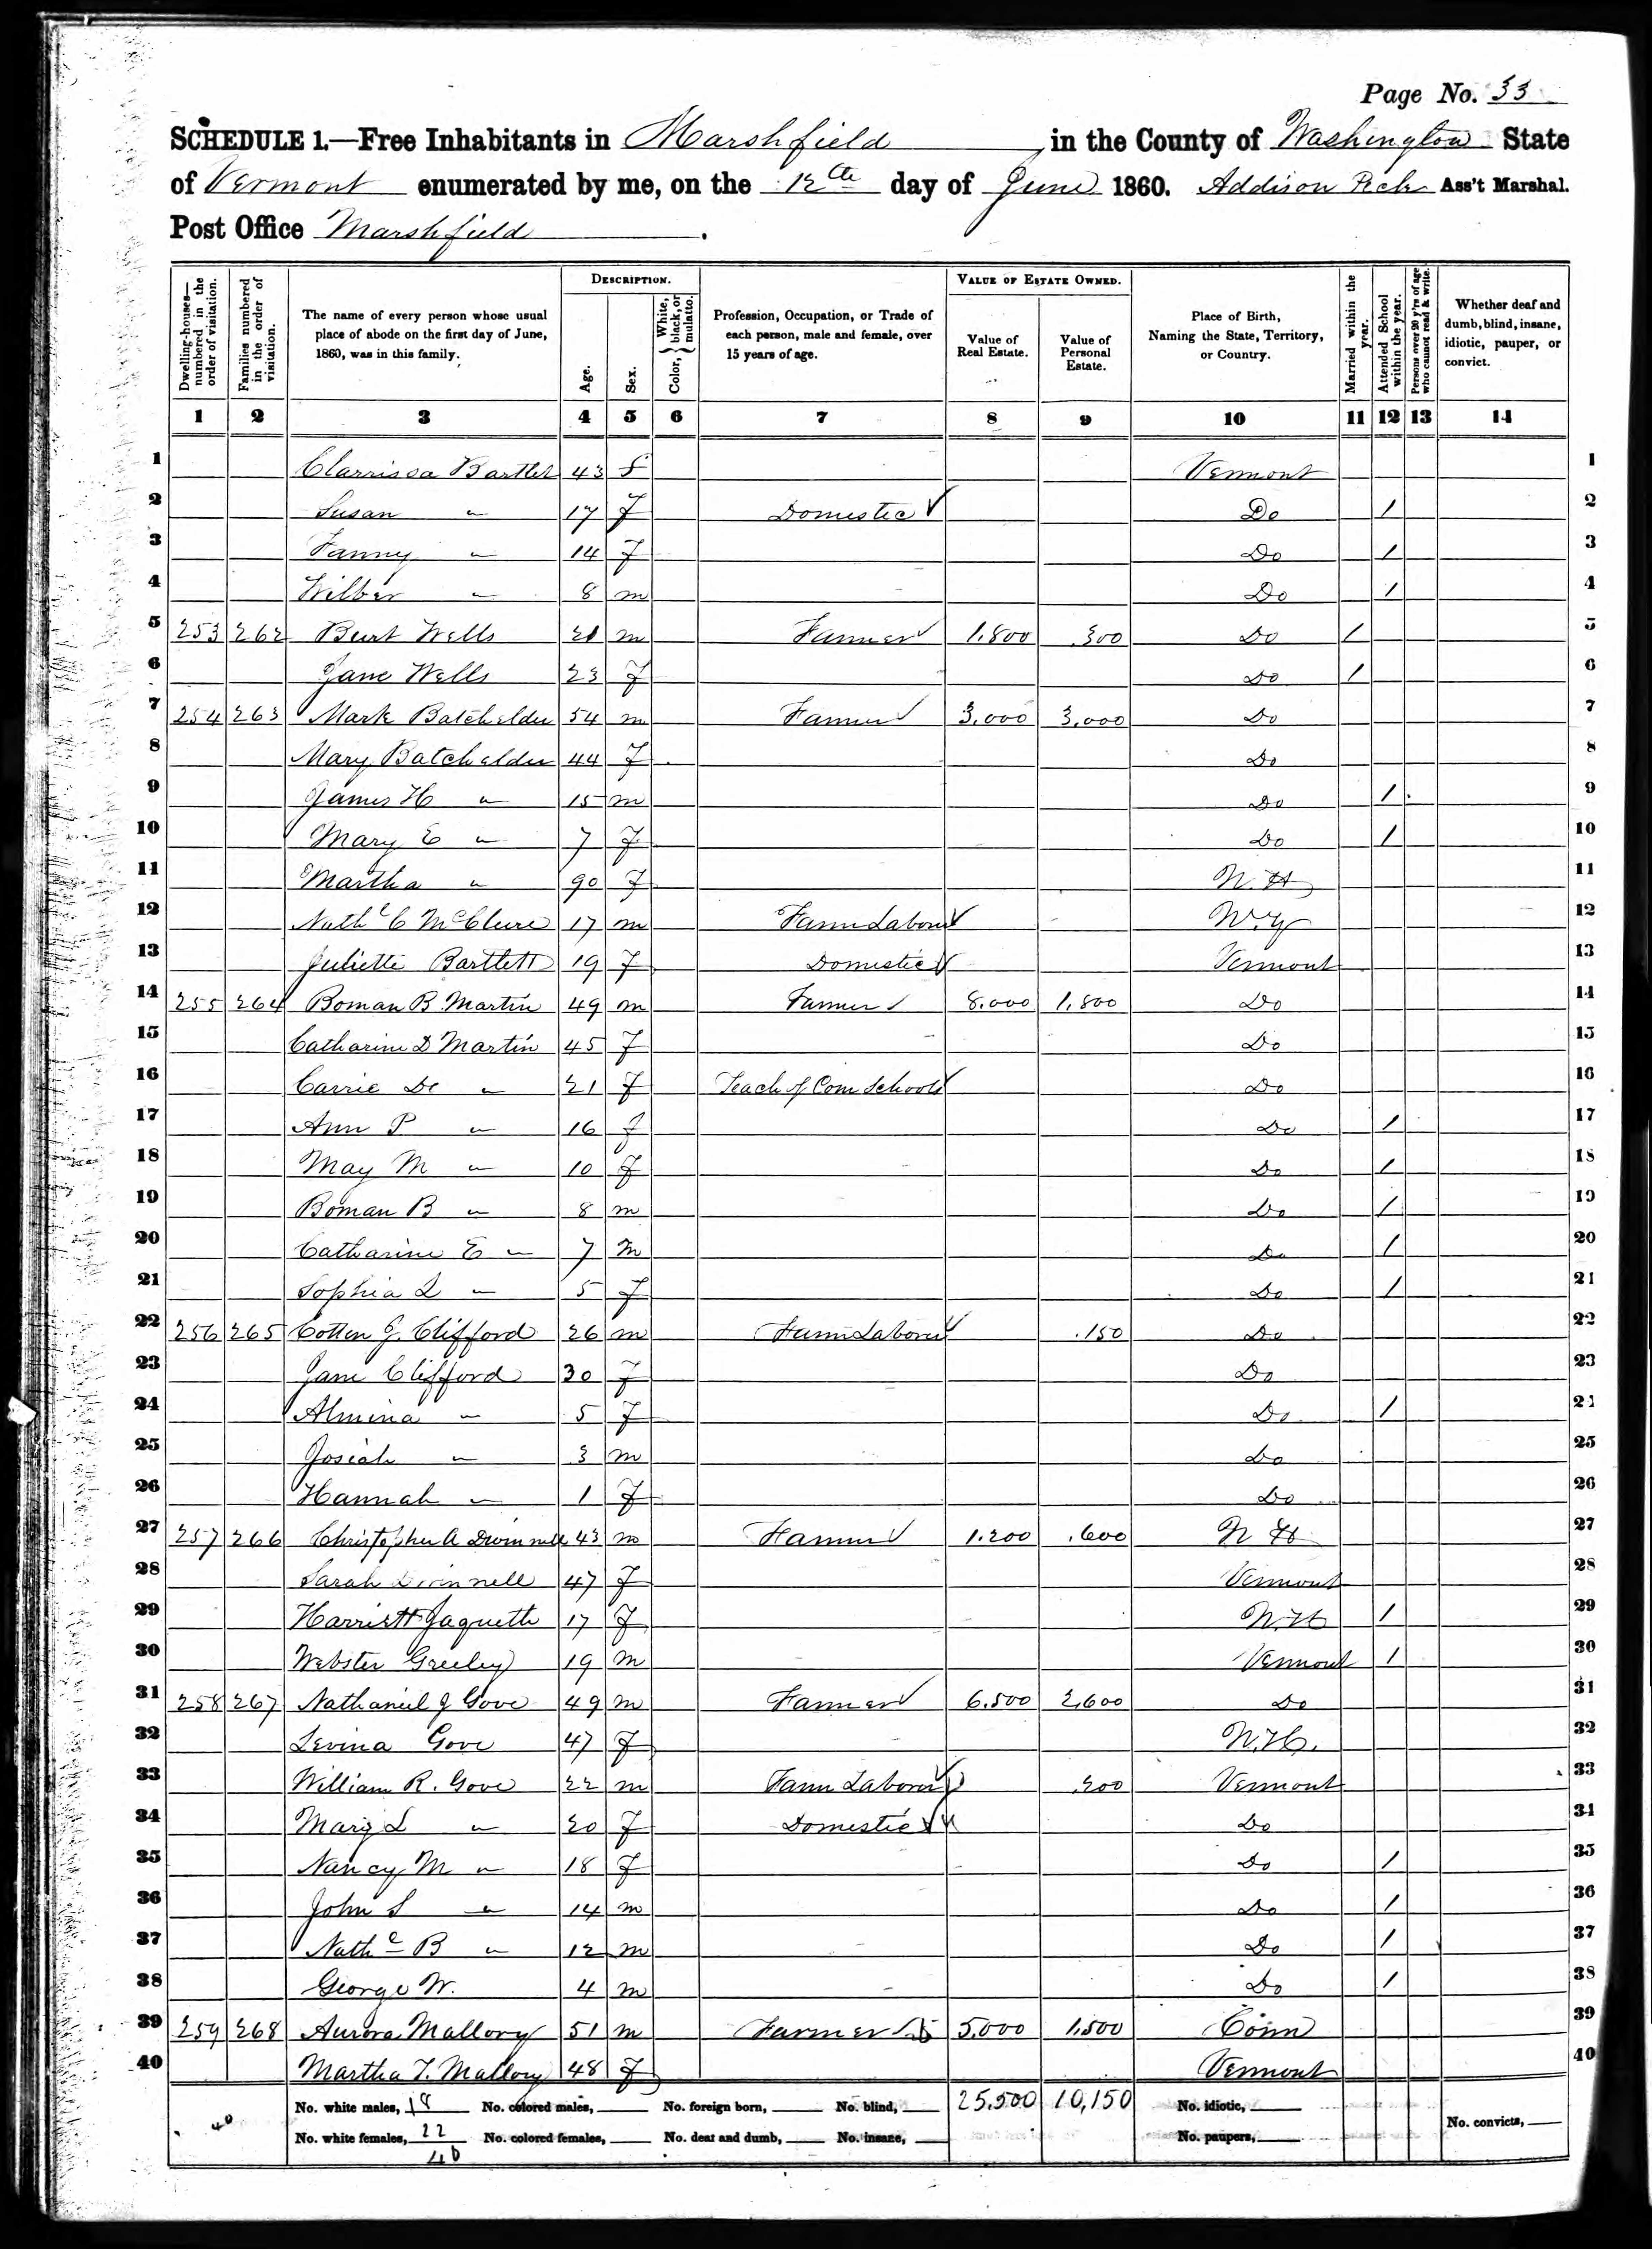 Page No. 33
SCHEDULE 1.—Free Inhabitants in Marshfield in the County of Washington State
of Vermont enumerated by me, on the 12th day of June 1860. Addison Peck Ass't Marshal.
Post Office Marshfield.
DESCRIPTION. VALUE OF ESTATE OWNED.
Dwelling-houses—numbered in the order of visitation. Families numbered in the order of visitation. The name of every person whose usual place of abode on the first day of June, 1860, was in this family. Age. Sex. Color, White, black, or mulatto. Profession, Occupation, or Trade of each person, male and female, over 15 years of age. Value of Real Estate. Value of Personal Estate. Place of Birth, Naming the State, Territory, or Country. Married within the year. Attended School within the year. Persons over 20 y'rs of age who cannot read & write. Whether deaf and dumb, blind, insane, idiotic, pauper, or convict.
1 2 3 4 5 6 7 8 9 10 11 12 13 14
1 Clarrissa Bartlet 43 f Vermont 1
2 Susan " 17 f Domestic Do / 2
3 Fanny " 14 f Do / 3
4 Wilber " 8 m Do / 4
5 253 262 Burt Wells 21 m Farmer 1.800 .300 Do / 5
6 Jane Wells 23 f Do / 6
7 254 263 Mark Batchelder 54 m Farmer 3.000 3.000 Do 7
8 Mary Batchelder 44 f Do 8
9 James H " 15 m Do / 9
10 Mary E " 7 f Do / 10
11 Martha " 90 f N.H 11
12 Nathl C McClure 17 m Farm Laborer N.Y 12
13 Juliette Bartlett 19 f Domestic Vermont 13
14 255 264 Boman B Martin 49 m Farmer 8.000 1.800 Do 14
15 Catharine D Martin 45 f Do 15
16 Carrie De " 21 f Teach of Com Schools Do 16
17 Ann P " 16 f Do / 17
18 May M " 10 f Do / 18
19 Boman B " 8 m Do / 19
20 Catharine E " 7 m Do / 20
21 Sophia L " 5 f Do / 21
22 256 265 Cotten J. Clifford 26 m Farm Laborer .150 Do 22
23 Jane Clifford 30 f Do 23
24 Almina " 5 f Do / 24
25 Josiah " 3 m Do 25
26 Hannah " 1 f Do 26
27 257 266 Christopher A Dwinnell 43 m Farmer 1.200 .600 N H 27
28 Sarah Dwinnell 47 f Vermont 28
29 Harriett Jaquette 17 f N.H / 29
30 Webster Greeley 19 m Vermont / 30
31 258 267 Nathaniel J Gove 49 m Farmer 6.500 2,600 Do 31
32 Levina Gove 47 f N.H. 32
33 William R. Gove 22 m Farm Laborer .200 Vermont 33
34 Mary L " 20 f Domestic Do 34
35 Nancy M " 18 f Do / 35
36 John S " 14 m Do / 36
37 Nathl B " 12 m Do / 37
38 George W. 4 m Do / 38
39 259 268 Aurora Mallory 51 m Farmer 5.000 1.500 Conn 39
40 Martha T. Mallory 48 f Vermont 40
40 No. white males, 18 No. colored males, No. foreign born, No. blind, 25,500 10,150 No. idiotic,
No. white females, 22 No. colored females, No. deaf and dumb, No. insane, No. paupers, No. convicts,
40